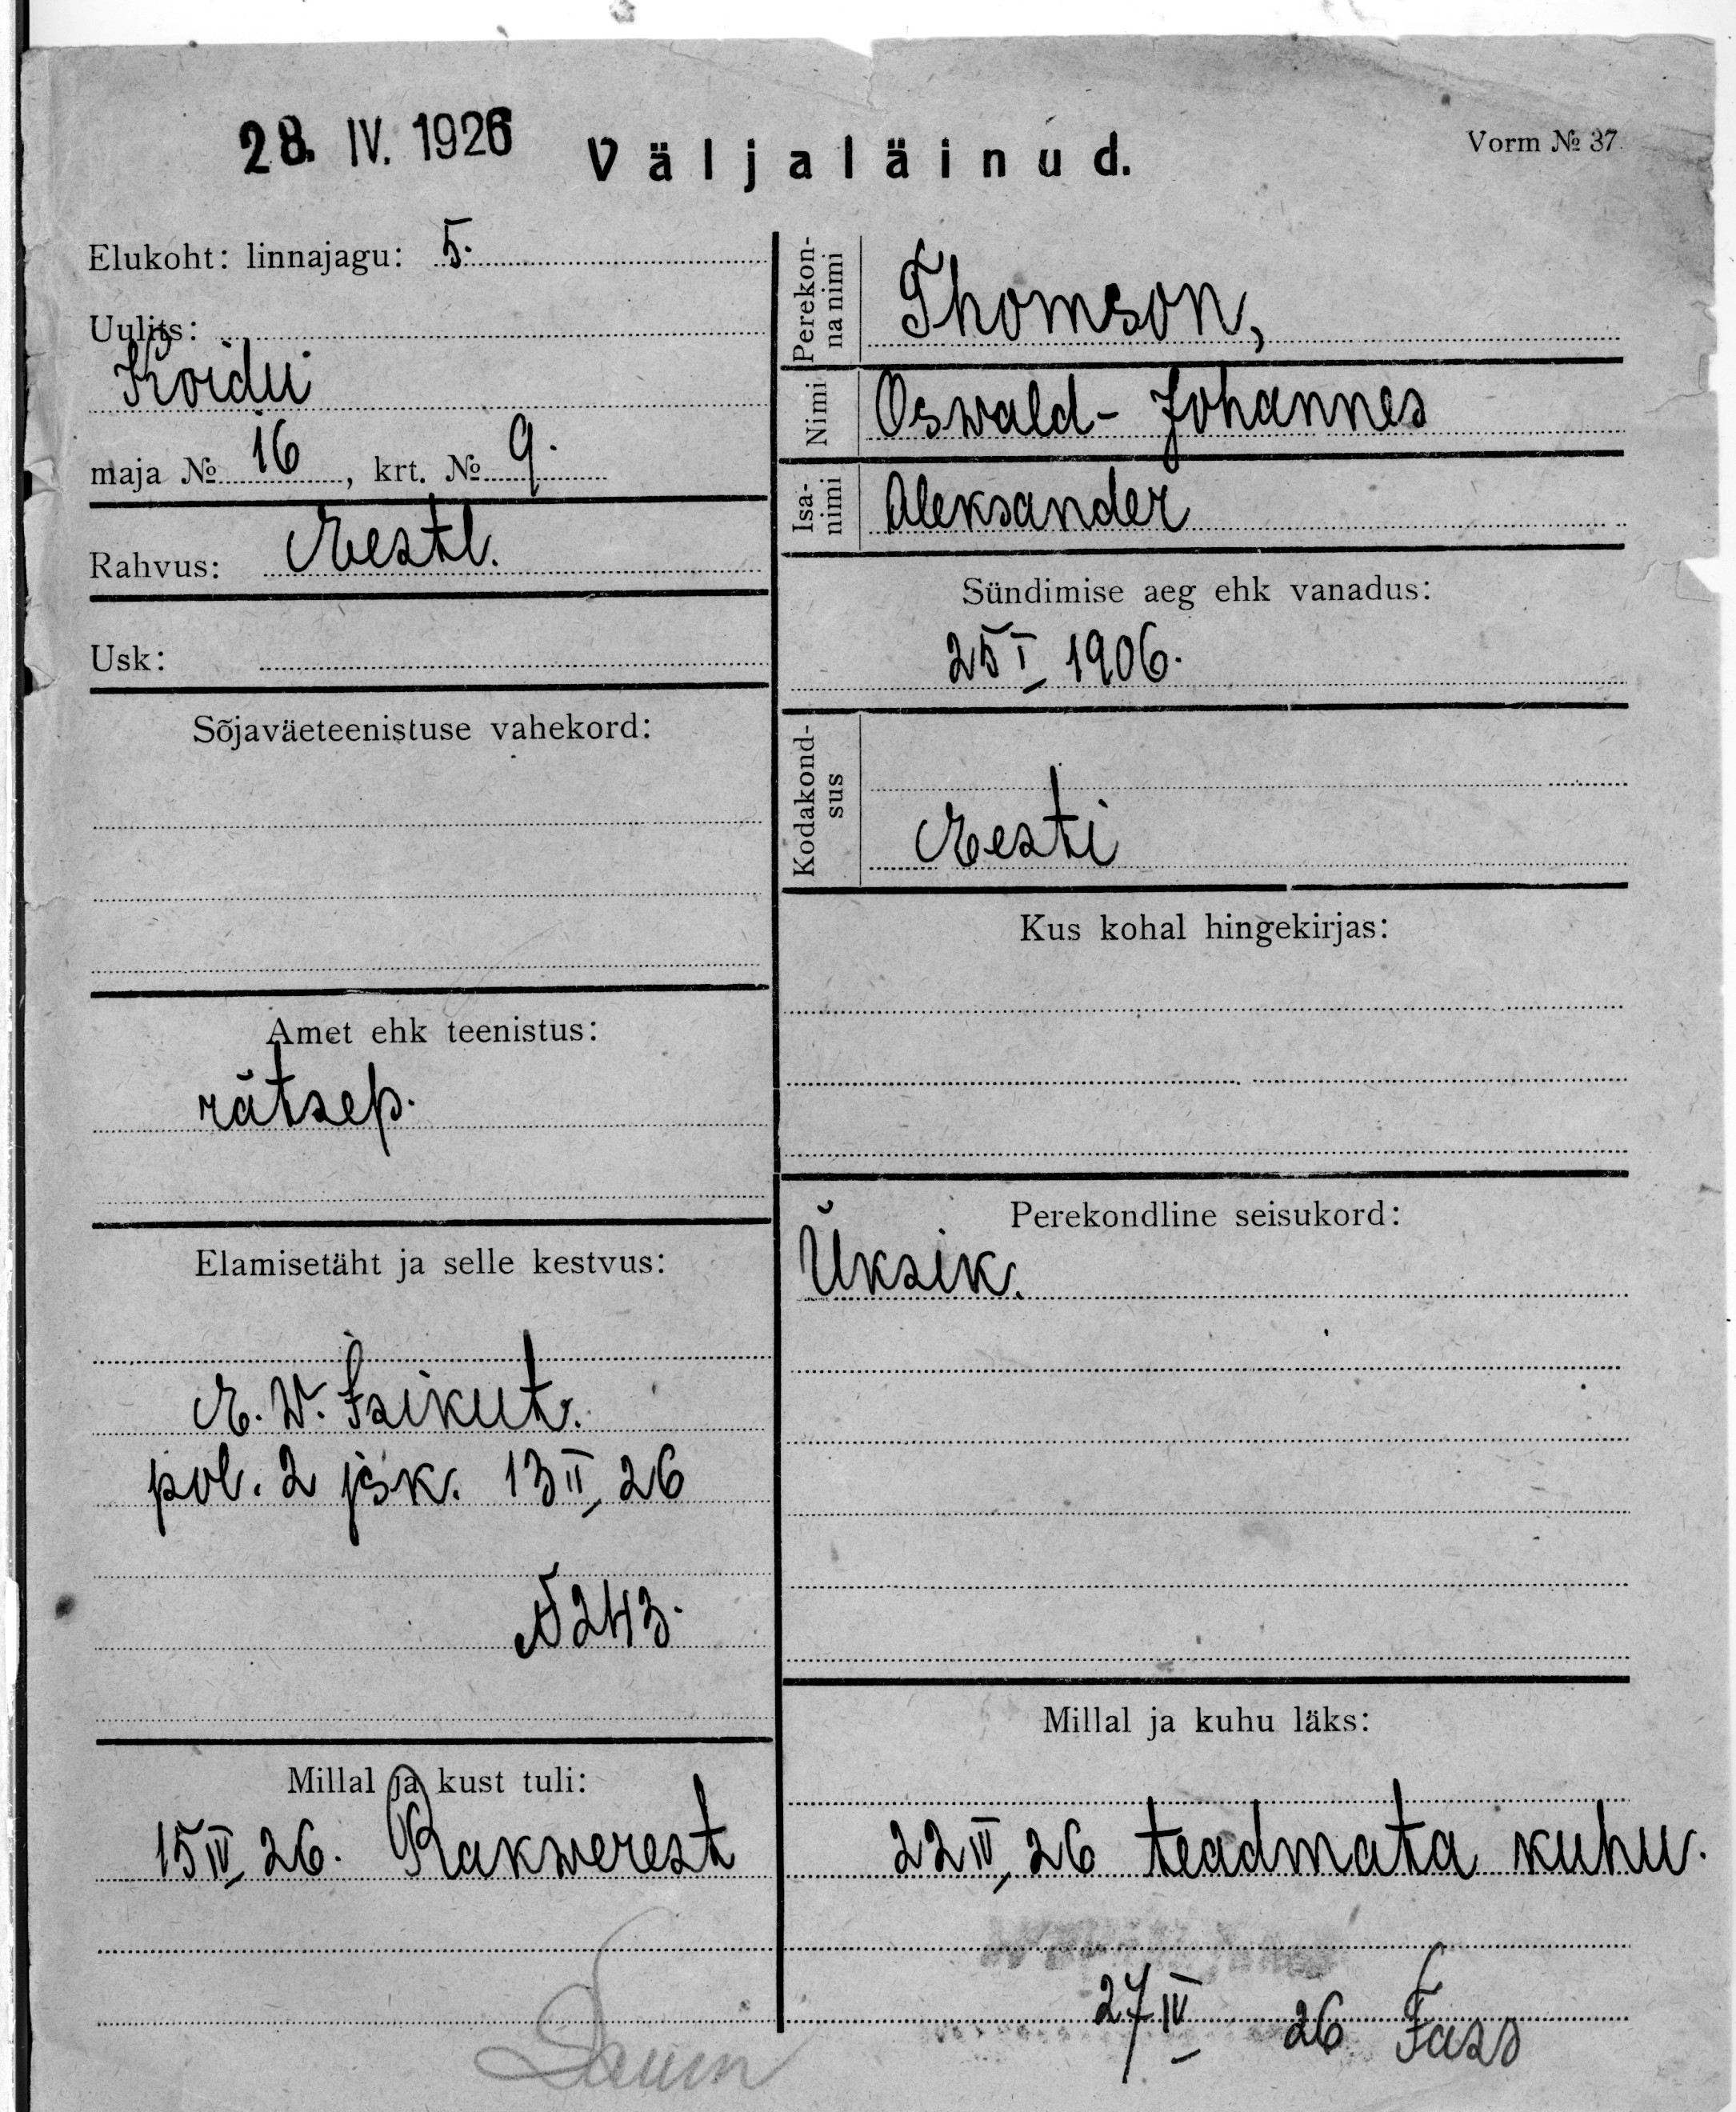 28. IV. 1926
Väljaläinud.
Vorm № 37.
Elukoht: linnajagu: 5.
Uulits:
Koidu
maja № 16, krt. № 9.
Rahvus: Eestl.
Usk:
Sõjaväeteenistuse vahekord:
Amet ehk teenistus:
rätsep.
Elamisetäht ja selle kestvus:
E. W. Isikut.
pol. 2 jsk. 13 II 26
№ 243.
Millal ja kust tuli:
15 IV 26. Rakwerest
Perekon-
na nimi
Thomson,
Nimi
Oswald-Johannes
Isa-
nimi
Aleksander
Sündimise aeg ehk vanadus:
25 I 1906.
Kodakond-
sus
Eesti
Kus kohal hingekirjas:
Perekondline seisukord:
Üksik.
Millal ja kuhu läks:
22 IV 26 teadmata kuhu.
27 IV 26